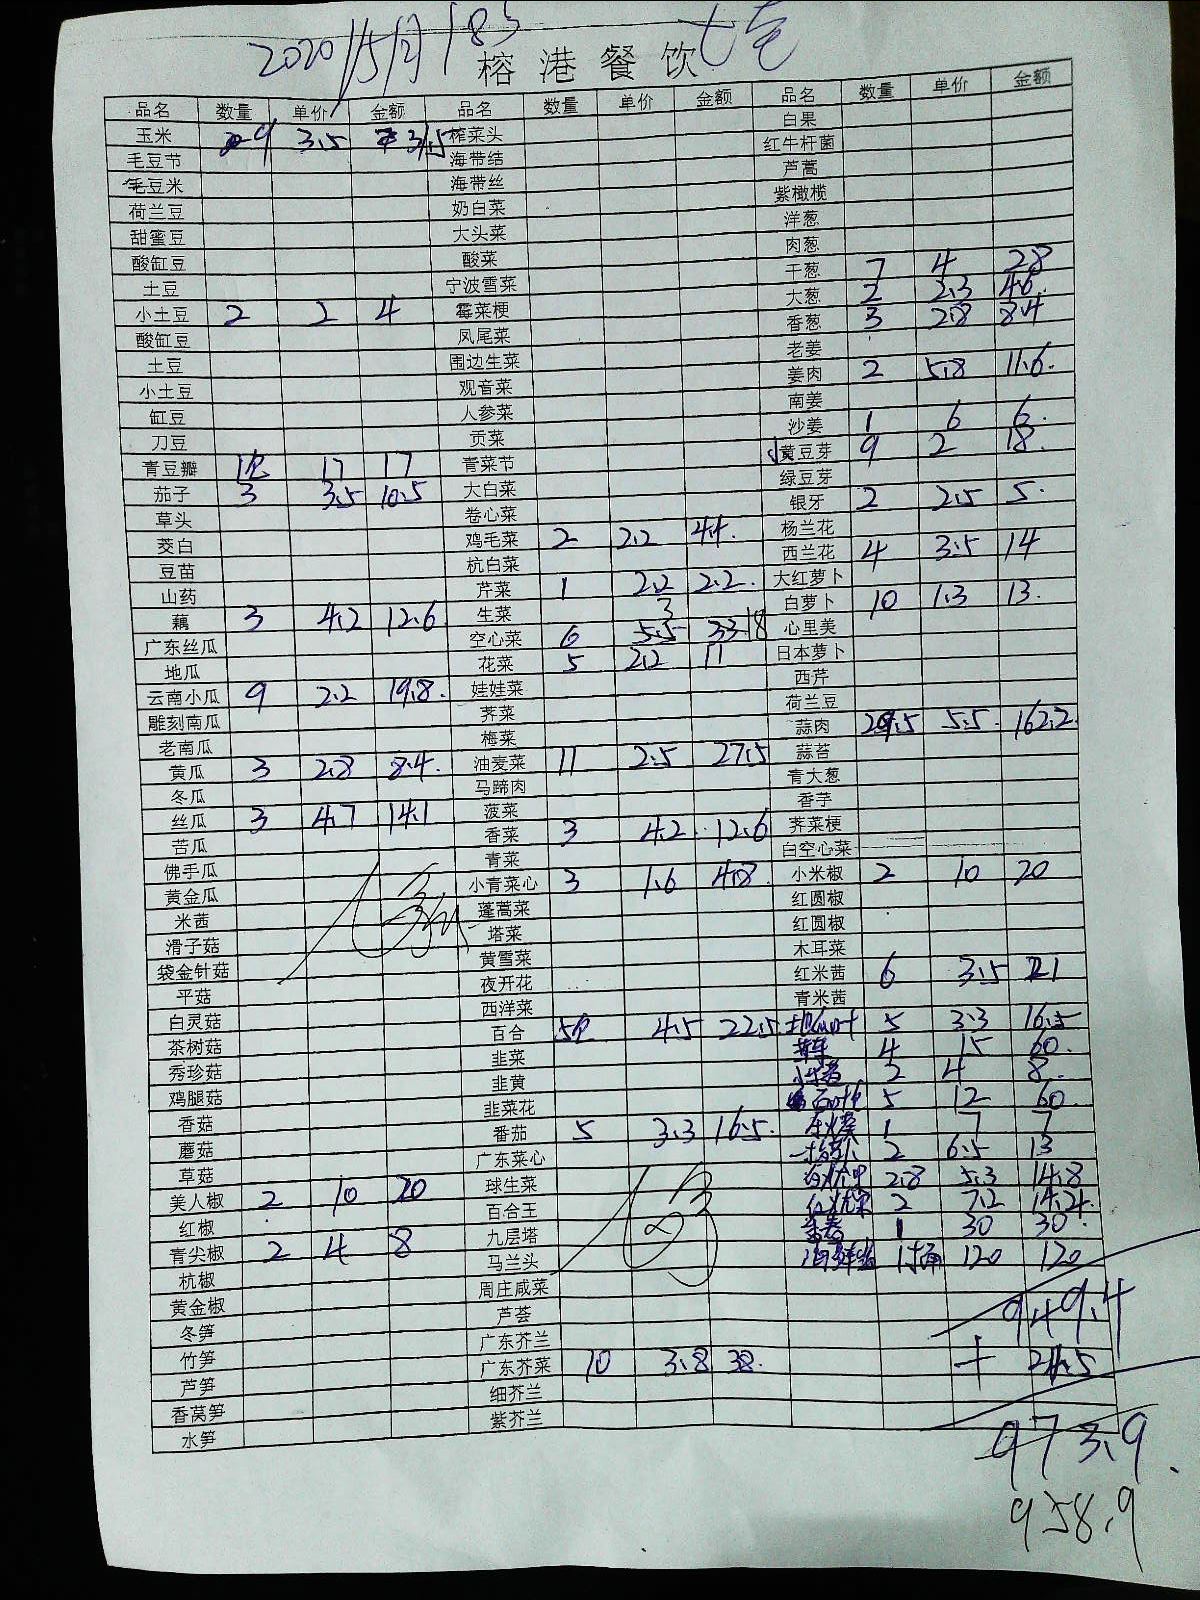 2020/5月18号
榕港餐饮
品名 数量 单价 金额 品名 数量 单价 金额 品名 数量 单价 金额
玉米 9 3.5 31.5 榨菜头 白果
毛豆节 海带结 红牛杆菌
毛豆米 海带丝 芦蒿
荷兰豆 奶白菜 紫橄榄
甜蜜豆 大头菜 洋葱
酸缸豆 酸菜 肉葱
土豆 宁波雪菜 干葱 7 4 28
小土豆 2 2 4 霉菜梗 大葱 2 2.3 4.6
酸缸豆 凤尾菜 香葱 3 2.8 8.4
土豆 围边生菜 老姜
小土豆 观音菜 姜肉 2 5.8 11.6
缸豆 人参菜 南姜
刀豆 贡菜 沙姜 1 6 6
青豆瓣 1包 17 17 青菜节 黄豆芽 9 2 18
茄子 3 3.5 10.5 大白菜 绿豆芽
草头 卷心菜 银牙 2 2.5 5
茭白 鸡毛菜 2 2.2 4.4 杨兰花
豆苗 杭白菜 西兰花 4 3.5 14
山药 芹菜 1 2.2 2.2 大红萝卜
藕 3 4.2 12.6 生菜 白萝卜 10 1.3 13
广东丝瓜 空心菜 6 5.5 3 33 18 心里美
地瓜 花菜 5 2.2 11 日本萝卜
云南小瓜 9 2.2 19.8 娃娃菜 西芹
雕刻南瓜 荠菜 荷兰豆
老南瓜 梅菜 蒜肉 29.5 5.5 162.2
黄瓜 3 2.8 8.4 油麦菜 11 2.5 27.5 蒜苔
冬瓜 马蹄肉 青大葱
丝瓜 3 4.7 14.1 菠菜 香芋
苦瓜 香菜 3 4.2 12.6 荠菜梗
佛手瓜 青菜 白空心菜
黄金瓜 小青菜心 3 1.6 4.8 小米椒 2 10 20
米茜 蓬蒿菜 红圆椒
滑子菇 塔菜 红圆椒
袋金针菇 黄雪菜 木耳菜
平菇 夜开花 红米茜 6 3.5 21
白灵菇 西洋菜 青米茜
茶树菇 百合 5包 4.5 22.5 5 3.3 16.5
秀珍菇 韭菜 4 15 60
鸡腿菇 韭黄 2 4 8
香菇 韭菜花 5 12 60
蘑菇 番茄 5 3.3 16.5 1 7 7
草菇 广东菜心 2 6.5 13
美人椒 2 10 20 球生菜 2.8 5.3 14.8
红椒 百合王 2 7.2 14.4
青尖椒 2 4 8 九层塔 1 30 30
杭椒 马兰头 1桶 120 120
黄金椒 周庄咸菜
冬笋 芦荟 949.4
竹笋 广东芥兰
芦笋 广东芥菜 10 3.8 38 + 24.5
香莴笋 细芥兰
水笋 紫芥兰
973.9
958.9